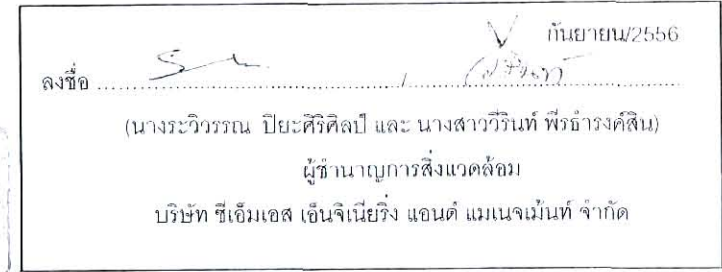 กันยายน/2556
ลงชื่อ
(นางระวิวรรณ ปิยะศิริศิลป์ และ นางสาววีรินท์ พีรธำรงค์สิน)
ผู้ชำนาญการสิ่งแวดล้อม
บริษัท ซีเอ็มเอส เอ็นจิเนียริ่ง แอนด์ แมเนจเม้นท์ จำกัด